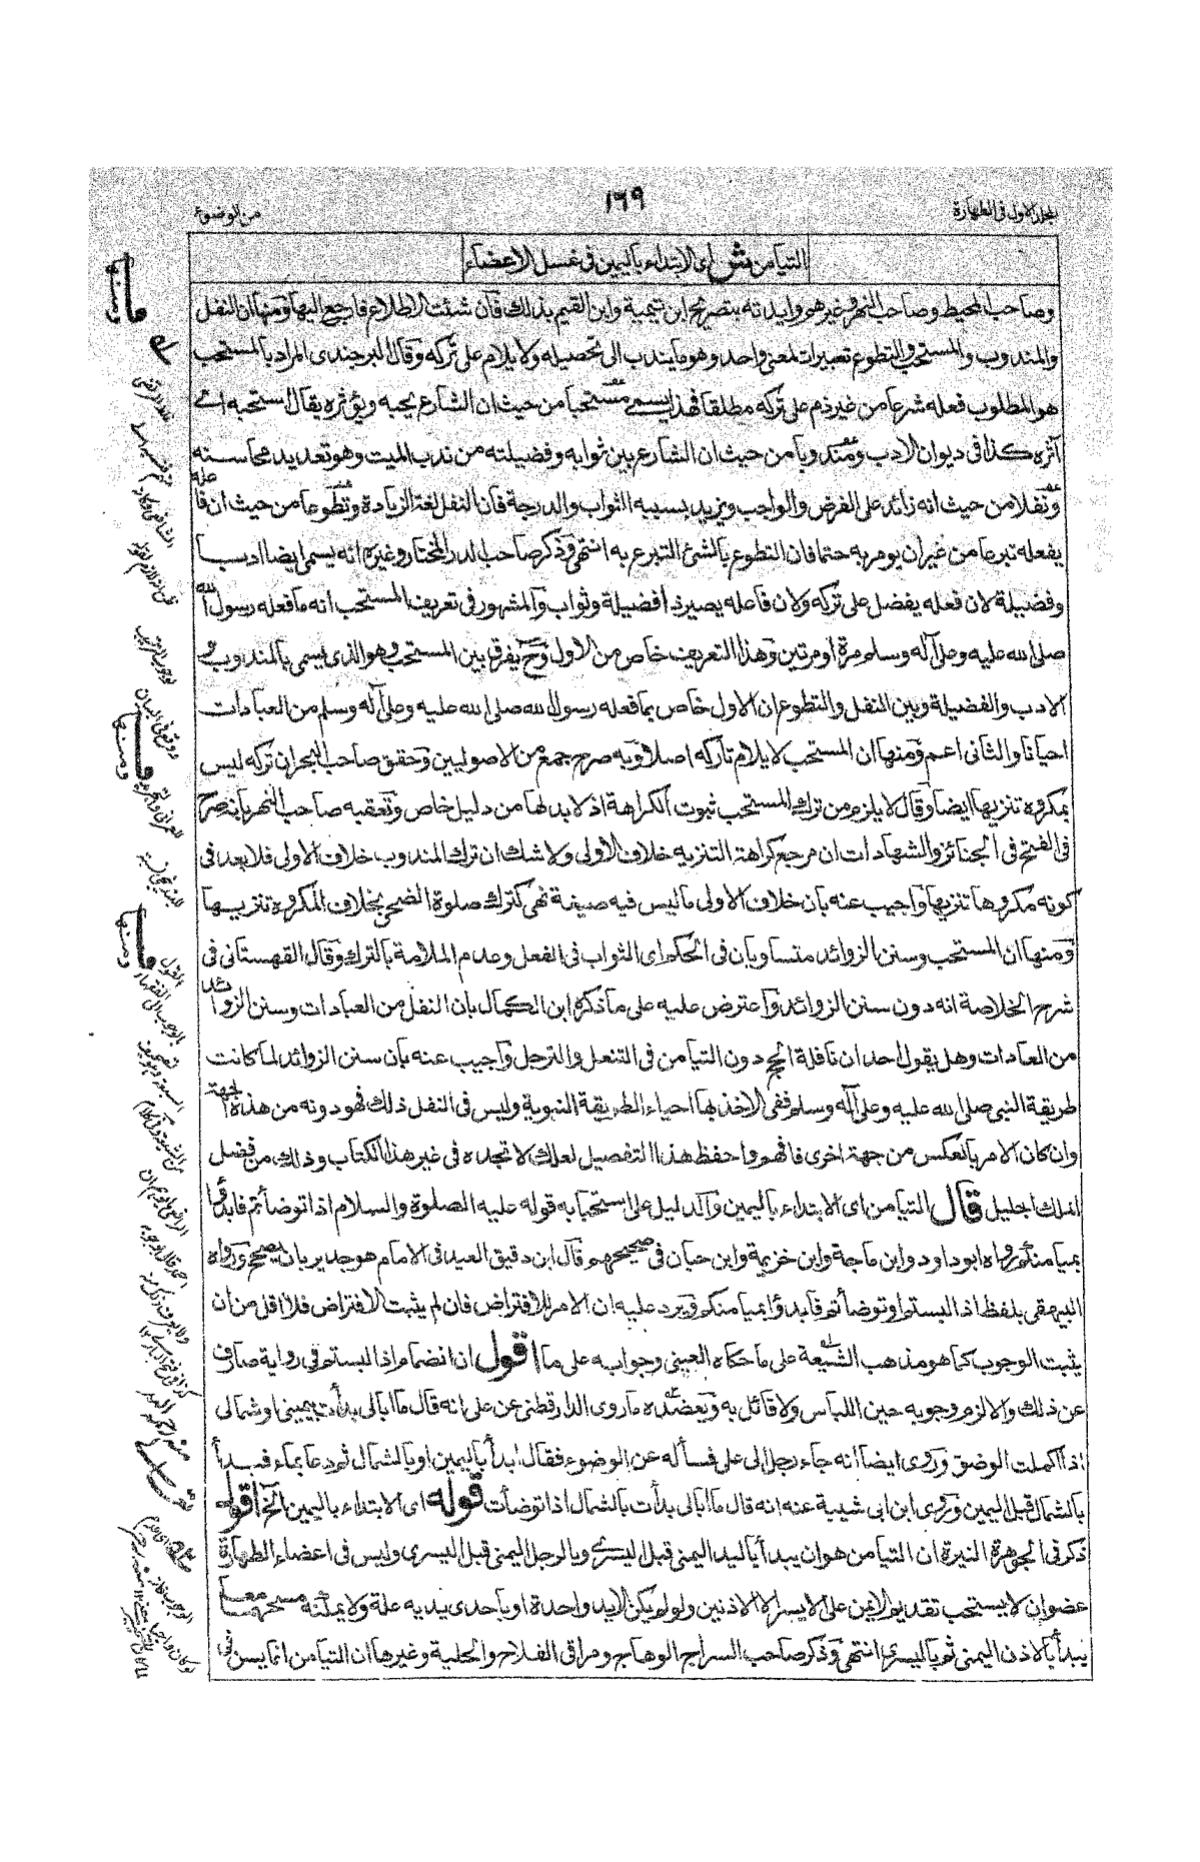 المجلد الاول فى الطهارة
١٦٩
من الوضوء
التيامن ش اى الابتداء باليمين فى غسل الاعضاء
وصاحب المحيط وصاحب النهر وغيرهم وايدته بتصريح ابن تيمية وابن القيم بذلك فان شئت الاطلاع فارجع اليها ومنها ان النفل
والمندوب والمستحب والتطوع تعبيرات لمعنى واحد وهو ما يندب الى تحصيله ولا يلام على تركه وقال البرجندى المراد بالمستحب
هو المطلوب فعله شرعا من غير ذم على تركه مطلقا فهذا يسمى مستحبا من حيث ان الشارع يحبه ويؤثره يقال استحبه اى
آثره كذا فى ديوان الادب ومندوبا من حيث ان الشارع بين ثوابه وفضيلته من ندب الميت وهو تعديد محاسنه
ونفلا من حيث انه زائد على الفرض والواجب ويزيد بسببه الثواب والدرجة فان النفل لغة الزيادة وتطوعا من حيث ان فاعله
يفعله تبرعا من غير ان يومر به حتما فان التطوع بالشئ التبرع به انتهى وذكر صاحب الدر المختار وغيره انه يسمى ايضا ادبا
وفضيلة لان فعله يفضل على تركه ولان فاعله يصير ذا فضيلة وثواب والمشهور فى تعريف المستحب انه ما فعله رسول الله
صلى الله عليه وعلى آله وسلم مرة او مرتين وهذا التعريف خاص من الاول وح يفرق بين المستحب وهو الذى يسمى بالمندوب و
الادب والفضيلة وبين النفل والتطوع ان الاول خاص بما فعله رسول الله صلى الله عليه وعلى آله وسلم من العبادات
احيانا والثانى اعم ومنها ان المستحب لا يلام تاركه اصلا وبه صرح جمع من الاصوليين وحقق صاحب البحر ان تركه ليس
بمكروه تنزيها ايضا وقال لا يلزم من ترك المستحب ثبوت الكراهة اذ لا بد لها من دليل خاص وتعقبه صاحب النهر بانه صرح
فى الفتح فى الجنائز والشهادات ان مرجع كراهة التنزيه خلاف الاولى ولا شك ان ترك المندوب خلاف الاولى فلا بعد فى
كونه مكروها تنزيها واجيب عنه بان خلاف الاولى ما ليس فيه صيغة نهى كترك صلوة الضحى بخلاف المكروه تنزيها
ومنها ان المستحب وسنن الزوائد متساويان فى الحكم اى الثواب فى الفعل وعدم الملامة بالترك وقال القهستانى فى
شرح الخلاصة انه دون سنن الزوائد واعترض عليه على ما ذكره ابن الكمال بان النفل من العبادات وسنن الزوائد
من العادات وهل يقول احد ان نافلة الحج دون التيامن فى التنعل والترجل واجيب عنه بان سنن الزوائد لما كانت
طريقة النبى صلى الله عليه وعلى آله وسلم ففى الاخذ بها احياء الطريقة النبوية وليس فى النفل ذلك فهو دونه من هذه الجهة
وان كان الامر بالعكس من جهة اخرى فافهم واحفظ هذا التفصيل لعلك لا تجده فى غير هذا الكتاب وذلك من فضل
الملك الجليل قال التيامن اى الابتداء باليمين والدليل على استحبابه قوله عليه الصلوة والسلام اذا توضأتم فابدؤا
بميامنكم رواه ابو داود وابن ماجة وابن خزيمة وابن حبان فى صحيحهم قال ابن دقيق العيد فى الامام هو جدير بان يصحح ورواه
البيهقى بلفظ اذا لبستم او توضأتم فابدؤا بميامنكم ويرد عليه ان الامر للافتراض فان لم يثبت الافتراض فلا اقل من ان
يثبت الوجوب كما هو مذهب الشيعة على ما حكاه العينى وجوابه على ما اقول ان انضمام اذا لبستم فى رواية صارف
عن ذلك والا لزم وجوبه حين اللباس ولا قائل به ويعضده ما روى الدارقطنى عن على انه قال ما ابالى بدأت بيمينى او شمالى
اذا اكملت الوضوء وروى ايضا انه جاء رجل الى على فسأله عن الوضوء فقال ابدأ باليمين او بالشمال ثم دعا بماء فبدأ
بالشمال قبل اليمين وروى ابن ابى شيبة عنه انه قال ما ابالى بدأت بالشمال اذا توضأت قوله اى الابتداء باليمين الخ اقول
ذكر فى الجوهرة النيرة ان التيامن هو ان يبدأ باليد اليمنى قبل اليسرى وبالرجل اليمنى قبل اليسرى وليس فى اعضاء الطهارة
عضوان لا يستحب تقديم الايمن على الايسر الا الاذنين ولو لم يكن الا يد واحدة او باحدى يديه علة ولا يمكنه مسحهما معا
يبدأ بالاذن اليمنى ثم باليسرى انتهى وذكر صاحب السراج الوهاج ومراقى الفلاح والحلية وغيرها ان التيامن انما يسن فى